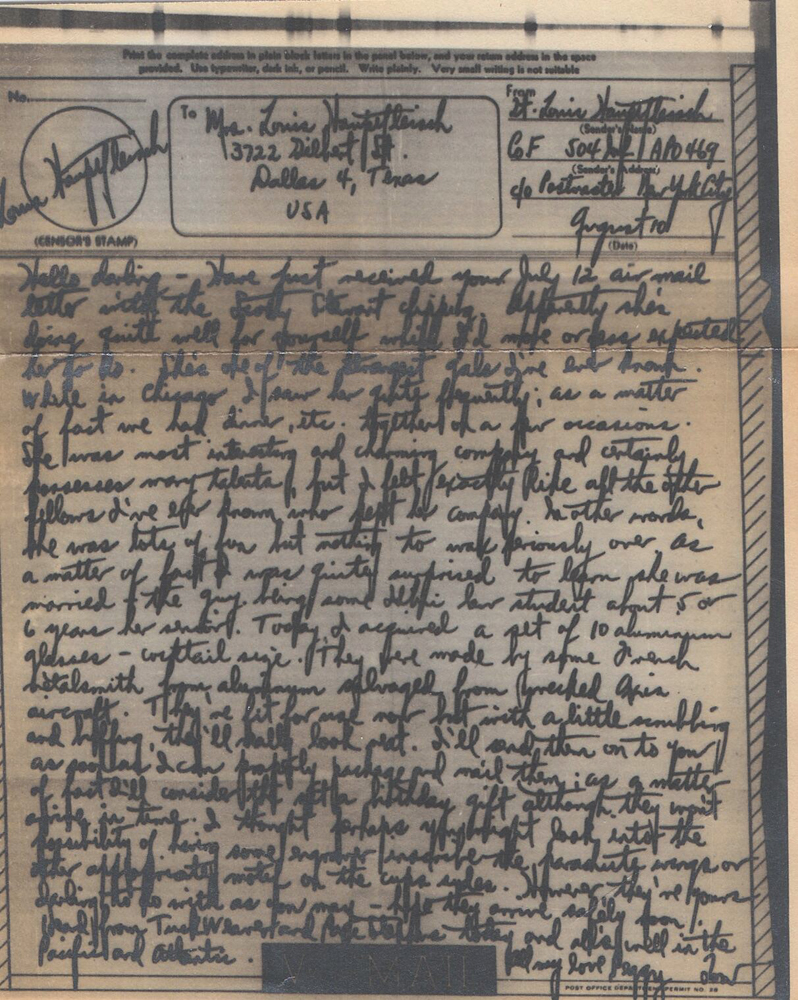 Print the complete address in plain block letters in the panel below, and your return address in the space
provided. Use typewriter, dark ink, or pencil. Write plainly. Very small writing is not suitable
No.
Louis Hauptfleisch
(CENSOR'S STAMP)
To Mrs. Louis Hauptfleisch
3722 Dilbert St.
Dallas 4, Texas
USA
From
Lt. Louis Hauptfleisch
(Sender's Name)
Co F 504 Inf APO 469
(Sender's Address)
c/o Postmaster New York City
August 10
(Date)
Hello darling - Have just received your July 12 air mail
letter with the Stewart clipping. Apparently she's
doing quite well for yourself which I'd more or less expected
her to do. She's one of the strangest gals I've ever known.
While in Chicago I saw her quite frequently; as a matter
of fact we had dinner, etc. together on a few occasions.
She was most interesting and charming company and certainly
possesses many talents, but I felt exactly like all the other
fellows I've ever known who kept her company. In other words,
she was lots of fun but nothing to wax seriously over. As
a matter of fact I was quite surprised to learn she was
married - the guy being some law student about 5 or
6 years her senior. Today I acquired a set of 10 aluminum
glasses - cocktail size. They were made by some French
metalsmith from aluminum salvaged from wrecked Axis
aircraft. They're fit for use now but with a little scrubbing
and buffing, they'll really look neat. I'll send them on to you
as soon as I can properly package and mail them; as a matter
of fact I'll consider the set a birthday gift although they won't
arrive in time. I thought perhaps you might look into the
possibility of having some engraver inscribe the parachute wings or
other appropriate notes on the cups sides. However they're yours
darling to do with as you may - hope they arrive safely soon!
Heard from Tuck Weaver and today and all's well in the
Pacific and Atlantic. All my love Peggy. Lou
V···—MAIL
POST OFFICE DEPARTMENT PERMIT NO. 28